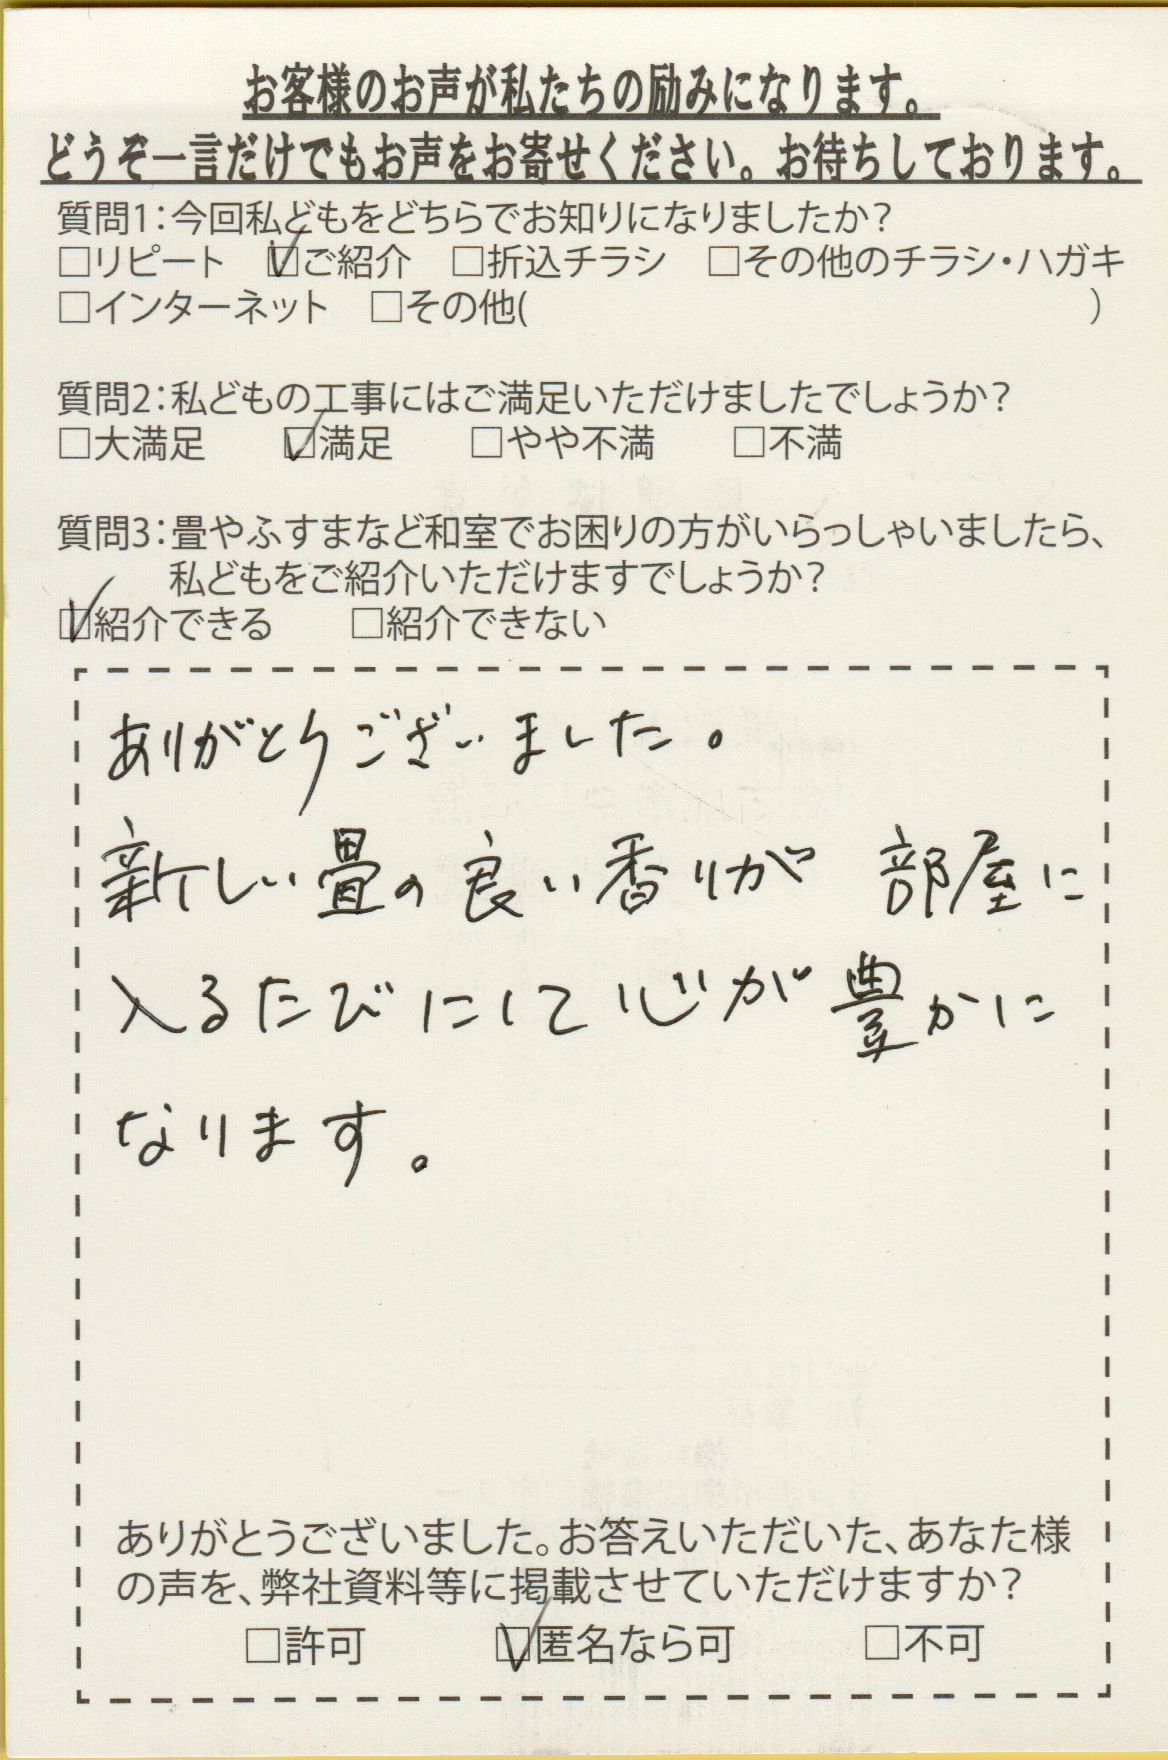 お客様のお声が私たちの励みになります。
どうぞ一言だけでもお声をお寄せください。お待ちしております。
質問1：今回私どもをどちらでお知りになりましたか？
□リピート ☑ご紹介 □折込チラシ □その他のチラシ・ハガキ
□インターネット □その他( )
質問2：私どもの工事にはご満足いただけましたでしょうか？
□大満足 ☑満足 □やや不満 □不満
質問3：畳やふすまなど和室でお困りの方がいらっしゃいましたら、
私どもをご紹介いただけますでしょうか？
☑紹介できる □紹介できない
ありがとうございました。
新しい畳の良い香りが 部屋に
入るたびにして心が豊かに
なります。
ありがとうございました。お答えいただいた、あなた様
の声を、弊社資料等に掲載させていただけますか？
□許可 ☑匿名なら可 □不可